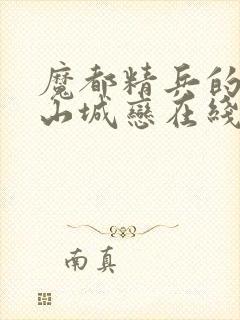 魔都精兵的
山城戀在綫
南真